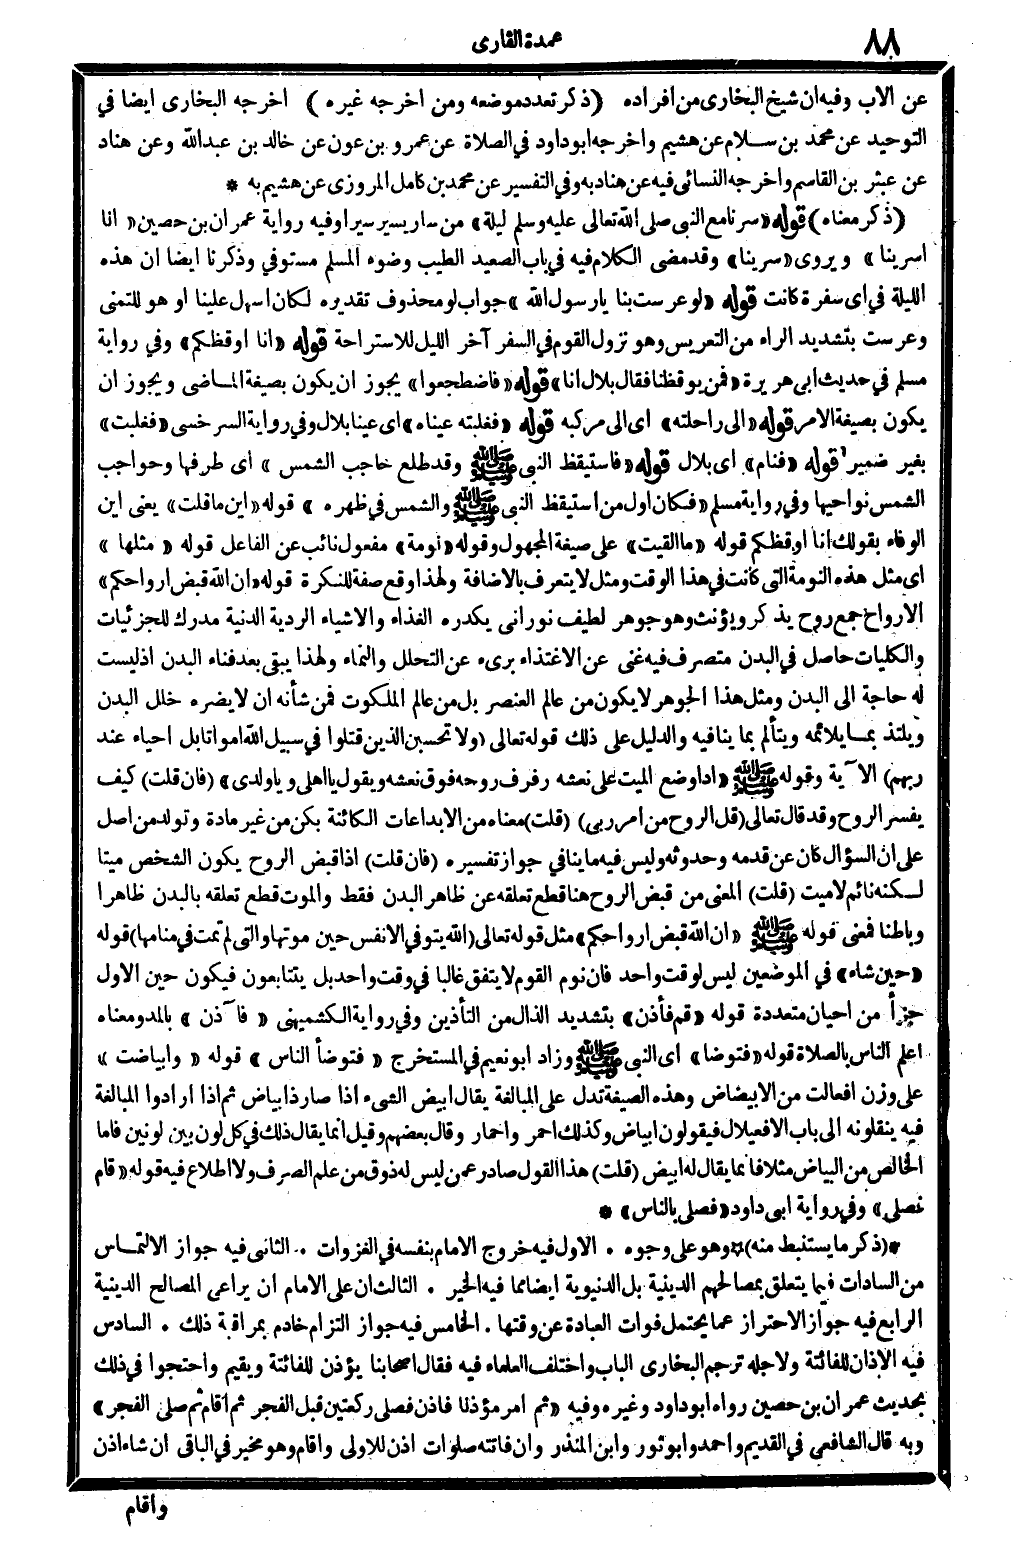 ٨٨
عمدة القارى
عن الاب وفيه ان شيخ البخارى من افراده (ذكر تعدد موضعه ومن اخرجه غيره) اخرجه البخارى ايضا في
التوحيد عن محمد بن سلام عن هشيم واخرجه ابو داود في الصلاة عن عمرو بن عون عن خالد بن عبدالله وعن هناد
عن عبثر بن القاسم واخرجه النسائى فيه عن هناد به وفي التفسير عن محمد بن كامل المروزى عن هشيم به *
(ذكر معناه) قوله «سرنا مع النبى صلى الله تعالى عليه وسلم ليلة» من سار يسير سيرا وفيه رواية عمران بن حصين «انا
اسرينا» ويروى «سرينا» وقد مضى الكلام فيه في باب الصعيد الطيب وضوء المسلم مستوفي وذكرنا ايضا ان هذه
الليلة في اى سفرة كانت قوله «لو عرست بنا يا رسول الله» جواب لو محذوف تقديره لكان اسهل علينا او هو للتمنى
وعرست بتشديد الراء من التعريس وهو نزول القوم في السفر آخر الليل للاستراحة قوله «انا اوقظكم» وفي رواية
مسلم في حديث ابى هريرة «فمن يوقظنا فقال بلال انا» قوله «فاضطجعوا» يجوز ان يكون بصيغة الماضى ويجوز ان
يكون بصيغة الامر قوله «الى راحلته» اى الى مركبه قوله «فغلبته عيناه» اى عينا بلال وفي رواية السرخسى «فغلبت»
بغير ضمير قوله «فنام» اى بلال قوله «فاستيقظ النبى ﷺ وقد طلع حاجب الشمس» اى طرفها وحواجب
الشمس نواحيها وفي رواية مسلم «فكان اول من استيقظ النبى ﷺ والشمس في ظهره» قوله «اين ما قلت» يعنى اين
الوفاء بقولك انا اوقظكم قوله «ما القيت» على صيغة المجهول وقوله «نومة» مفعول نائب عن الفاعل قوله «مثلها»
اى مثل هذه النومة التى كانت في هذا الوقت ومثل لا يتعرف بالاضافة ولهذا وقع صفة للنكرة قوله «ان الله قبض ارواحكم»
الارواح جمع روح يذكر ويؤنث وهو جوهر لطيف نورانى يكدره الغذاء والاشياء الردية الدنية مدرك للجزئيات
والكليات حاصل في البدن متصرف فيه غنى عن الاغتذاء برىء عن التحلل والنماء ولهذا يبقى بعد فناء البدن اذ ليست
له حاجة الى البدن ومثل هذا الجوهر لا يكون من عالم العنصر بل من عالم الملكوت فمن شأنه ان لا يضره خلل البدن
ويلتذ بما يلائمه ويتألم بما ينافيه والدليل على ذلك قوله تعالى (ولا تحسبن الذين قتلوا في سبيل الله امواتا بل احياء عند
ربهم) الآية وقوله ﷺ «اذا وضع الميت على نعشه رفرف روحه فوق نعشه ويقول يا اهلى ويا ولدى» (فان قلت) كيف
يفسر الروح وقد قال تعالى (قل الروح من امر ربى) (قلت) معناه من الابداعات الكائنة بكن من غير مادة وتولد من اصل
على ان السؤال كان عن قدمه وحدوثه وليس فيه ما ينافي جواز تفسيره (فان قلت) اذا قبض الروح يكون الشخص ميتا
لكنه نائم لا ميت (قلت) المعنى من قبض الروح هنا قطع تعلقه عن ظاهر البدن فقط والموت قطع تعلقه بالبدن ظاهرا
وباطنا فمعنى قوله ﷺ «ان الله قبض ارواحكم» مثل قوله تعالى (الله يتوفى الانفس حين موتها والتى لم تمت في منامها) قوله
«حين شاء» في الموضعين ليس لوقت واحد فان نوم القوم لا يتفق غالبا في وقت واحد بل يتتابعون فيكون حين الاول
جزأ من احيان متعددة قوله «قم فأذن» بتشديد الذال من التأذين وفي رواية الكشميهنى «فآذن» بالمد ومعناه
اعلم الناس بالصلاة قوله «فتوضا» اى النبى ﷺ وزاد ابو نعيم في المستخرج «فتوضأ الناس» قوله «وابياضت»
على وزن افعالت من الابيضاض وهذه الصيغة تدل على المبالغة يقال ابيض الشىء اذا صار ذا بياض ثم اذا ارادوا المبالغة
فيه ينقلونه الى باب الافعيلال فيقولون ابياض وكذلك احمر واحمار وقال بعضهم وقيل انما يقال ذلك في كل لون بين لونين فاما
الخالص من البياض مثلا فانما يقال له ابيض (قلت) هذا القول صادر عمن ليس له ذوق من علم الصرف ولا اطلاع فيه قوله «قام
فصلى» وفي رواية ابى داود «فصلى بالناس» *
*(ذكر ما يستنبط منه)* وهو على وجوه . الاول فيه خروج الامام بنفسه في الغزوات .. الثانى فيه جواز الالتماس
من السادات فيما يتعلق بمصالحهم الدينية بل الدنيوية ايضا مما فيه الخير . الثالث ان على الامام ان يراعى المصالح الدينية
الرابع فيه جواز الاحتراز عما يحتمل فوات العبادة عن وقتها . الخامس فيه جواز التزام خادم بمراقبة ذلك . السادس
فيه الاذان للفائتة ولاجله ترجم البخارى الباب واختلف العلماء فيه فقال اصحابنا يؤذن للفائتة ويقيم واحتجوا في ذلك
بحديث عمران بن حصين رواه ابو داود وغيره وفيه «ثم امر مؤذنا فاذن فصلى ركعتين قبل الفجر ثم اقام ثم صلى الفجر»
وبه قال الشافعى في القديم واحمد وابو ثور وابن المنذر وان فاتته صلوات اذن للاولى واقام وهو مخير في الباقى ان شاء اذن
واقام